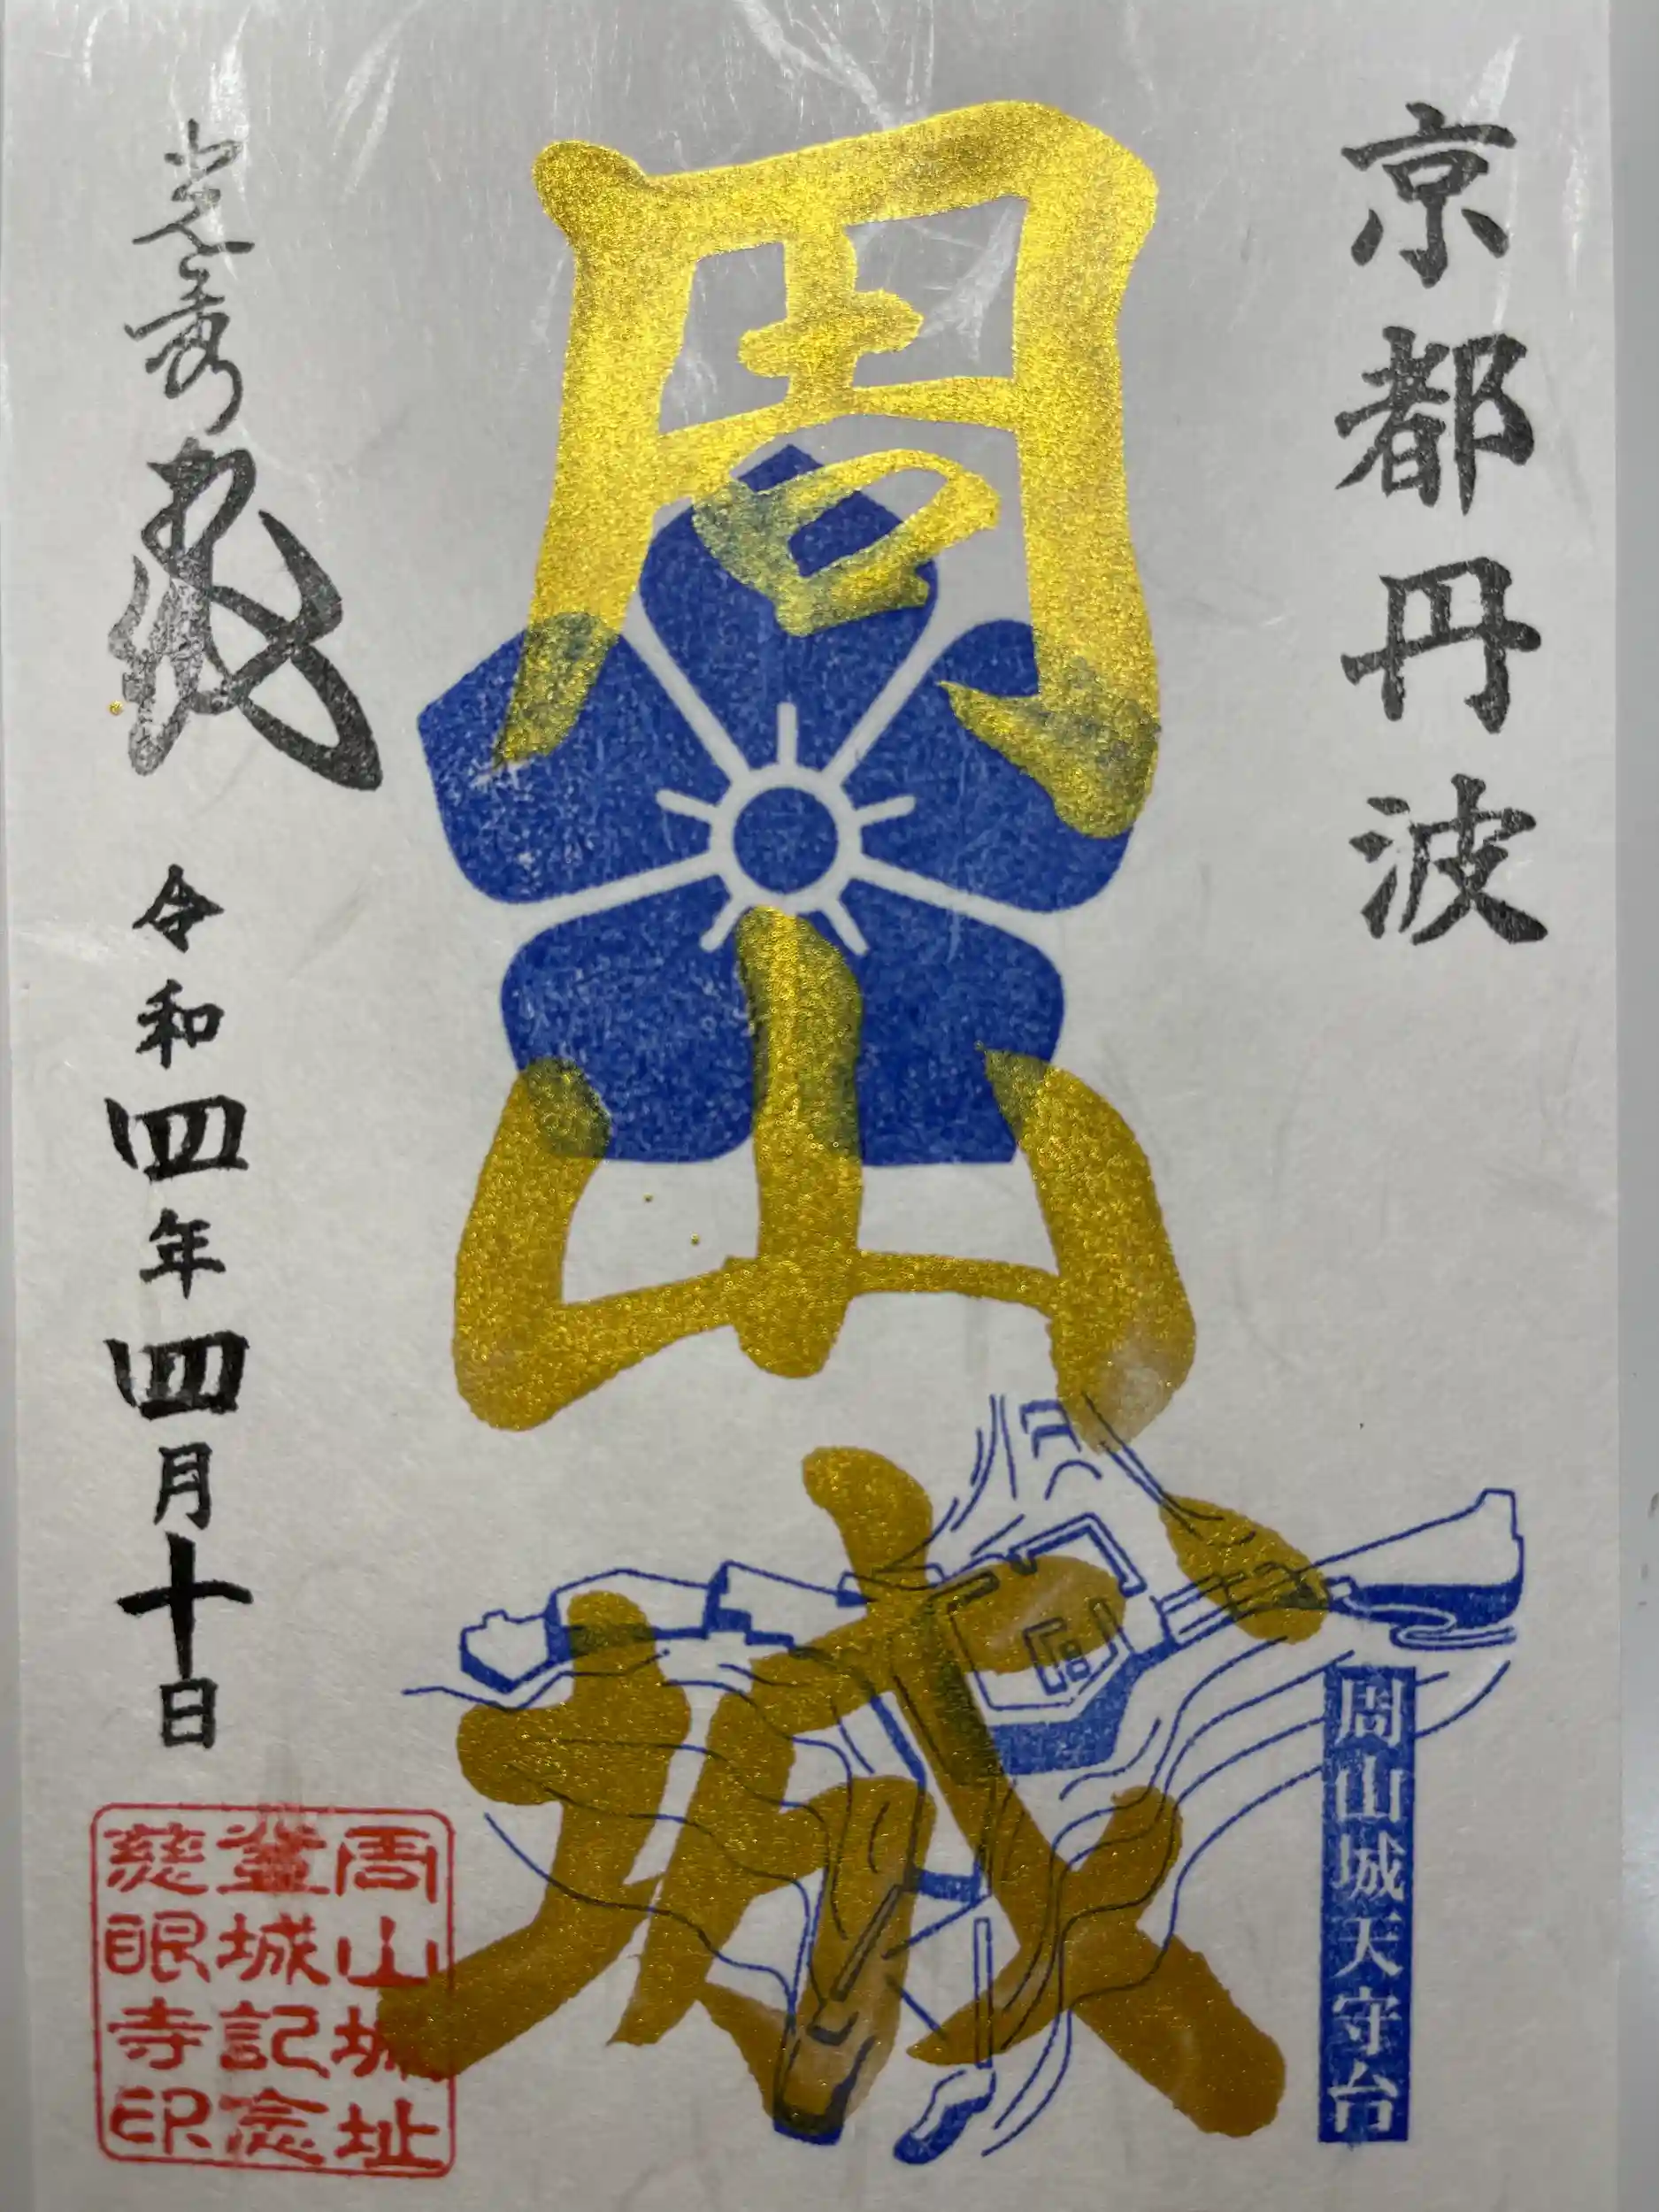 京都丹波
周山城
周山城天守台
光秀
令和四年四月十日
周山城址
登城記念
慈眼寺印